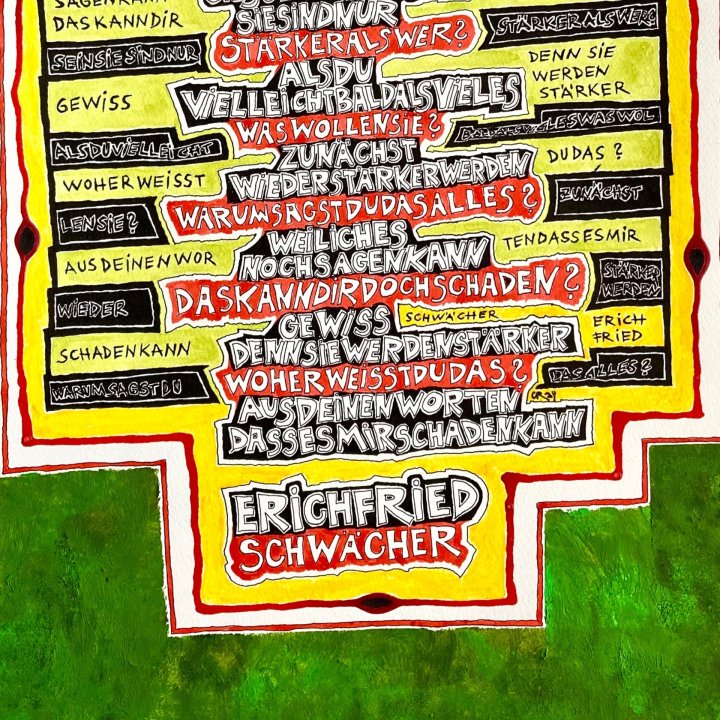 SAGENKANN
DASKANNDIR
SEINSIESINDNUR
GEWISS
ALSDUVIELLEICHT
WOHER WEISST
LENSIE?
AUSDEINENWOR
WIEDER
SCHADENKANN
WARUMSAGSTDU
SIESINDNUR
STÄRKERALSWER?
ALSDU
VIELLEICHTBALDALSVIELES
WASWOLLENSIE?
ZUNÄCHST
WIEDERSTÄRKERWERDEN
WARUMSAGSTDUDASALLES?
WEILICHES
NOCHSAGENKANN
DASKANNDIRDOCHSCHADEN?
GEWISS
SCHWÄCHER
DENNSIEWERDENSTÄRKER
WOHERWEISSTDUDAS?
AUSDEINENWORTEN
DASSESMIRSCHADENKANN
STÄRKERALSWER?
DENN SIE
WERDEN
STÄRKER
DUDAS?
ZUNÄCHST
TENDASSESMIR
STÄRKER
WERDEN
ERICH
FRIED
DASALLES?
ERICHFRIED
SCHWÄCHER